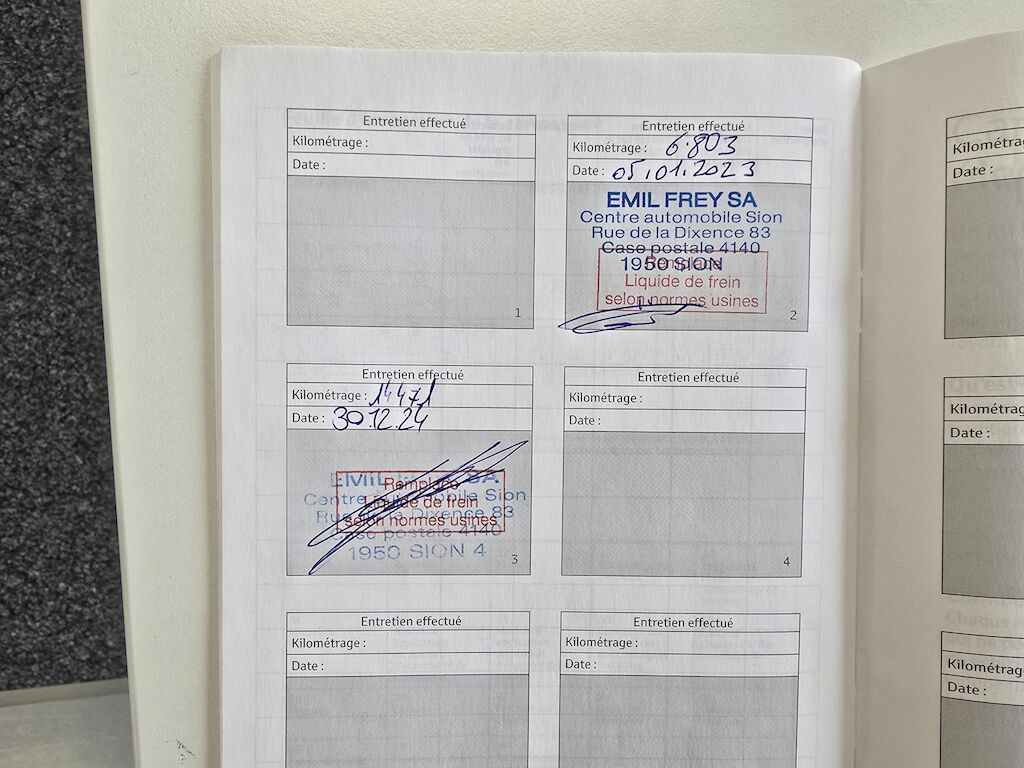 Entretien effectué
Kilométrage :
Date :
1
Entretien effectué
Kilométrage : 6.803
Date : 05.01.2023
EMIL FREY SA
Centre automobile Sion
Rue de la Dixence 83
Case postale 4140
1950 SION
Remplacé
Liquide de frein
selon normes usines
2
Entretien effectué
Kilométrage : 14471
Date : 30.12.24
EMIL FREY SA
Centre automobile Sion
Rue de la Dixence 83
Case postale 4140
1950 SION 4
Remplacé
Liquide de frein
selon normes usines
3
Entretien effectué
Kilométrage :
Date :
4
Entretien effectué
Kilométrage :
Date :
Entretien effectué
Kilométrage :
Date :
Kilométra
Date :
Kilométra
Date :
Kilométra
Date :